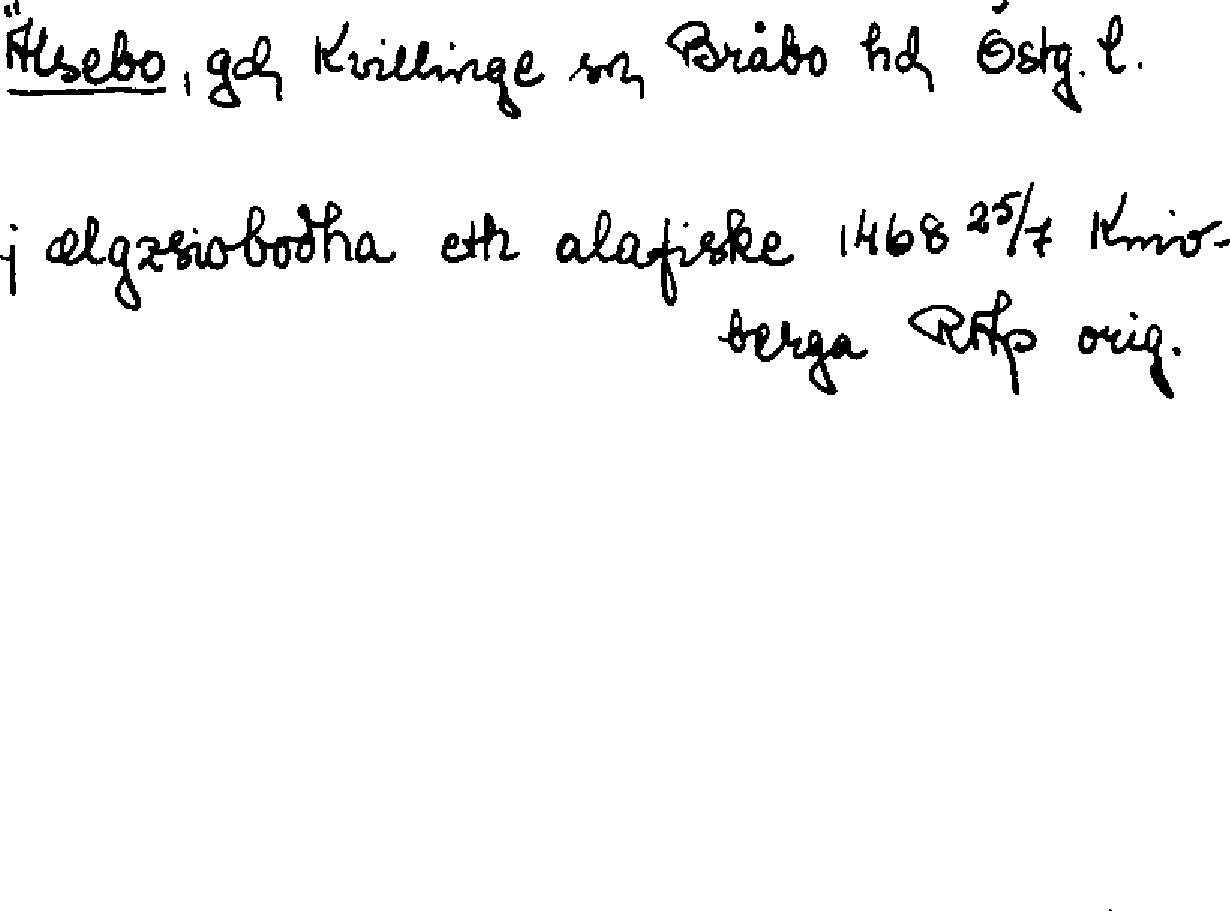 Älsebo, gd, Kvillinge sn, Bråbo hd, Östg. l.
j ælgzsioboðha eth alafiske 1468 25/7 Knivs-
berga RAp orig.